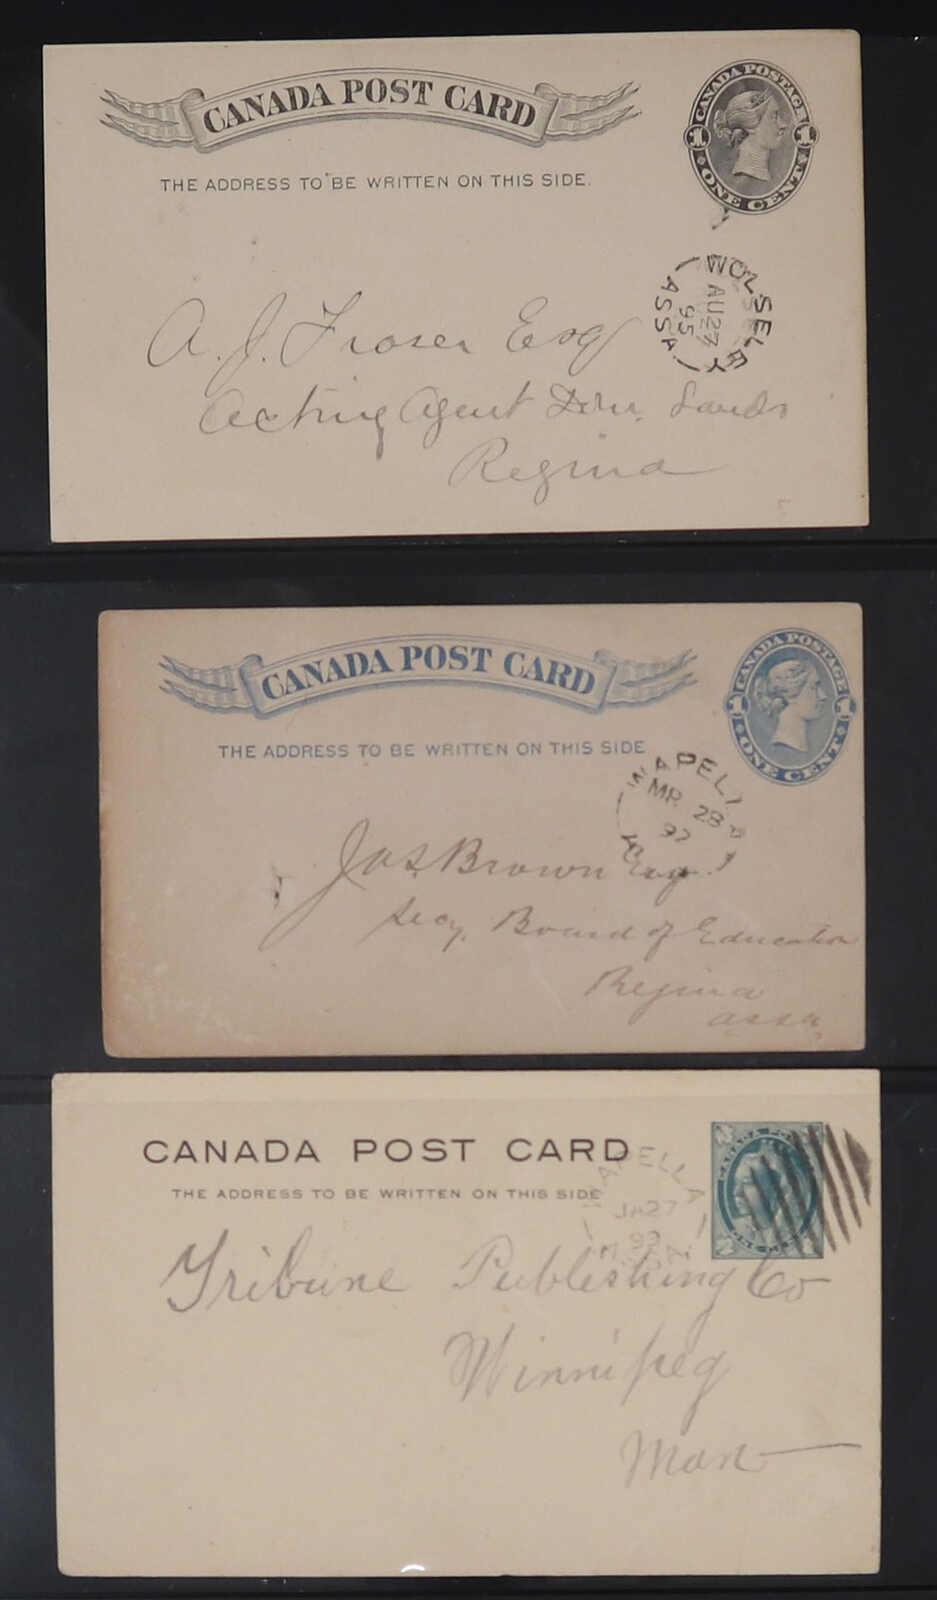 CANADA POST CARD
THE ADDRESS TO BE WRITTEN ON THIS SIDE.
CANADA POSTAGE
1 1
ONE CENT
WOLSELEY
AU 27
95
ASSA
A. J. Fraser Esq
Acting Agent Dom. Lands
Regina
CANADA POST CARD
THE ADDRESS TO BE WRITTEN ON THIS SIDE
CANADA POSTAGE
1 1
ONE CENT
WAPELL
MR 28
Jas Brown Esq
Secy. Board of Education
Regina
Assa
CANADA POST CARD
THE ADDRESS TO BE WRITTEN ON THIS SIDE
WAPELLA
JA 27
Tribune Publishing Co
Winnipeg
Man